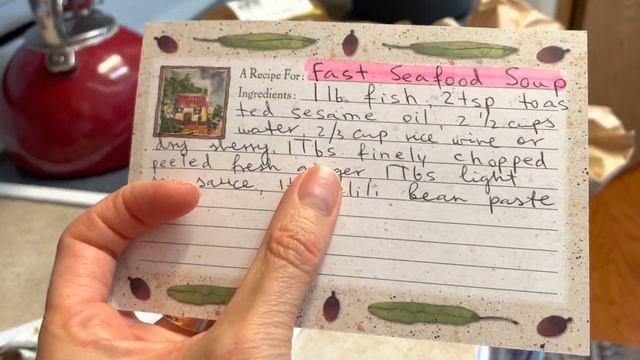 A Recipe For: Fast Seafood Soup
Ingredients: 1 lb fish, 2 tsp toas
ted sesame oil, 2 1/2 cups
water, 2/3 cup rice wine or
dry sherry, 1 Tbs finely chopped
peeled fresh ginger 1 Tbs light
sauce, chili bean paste